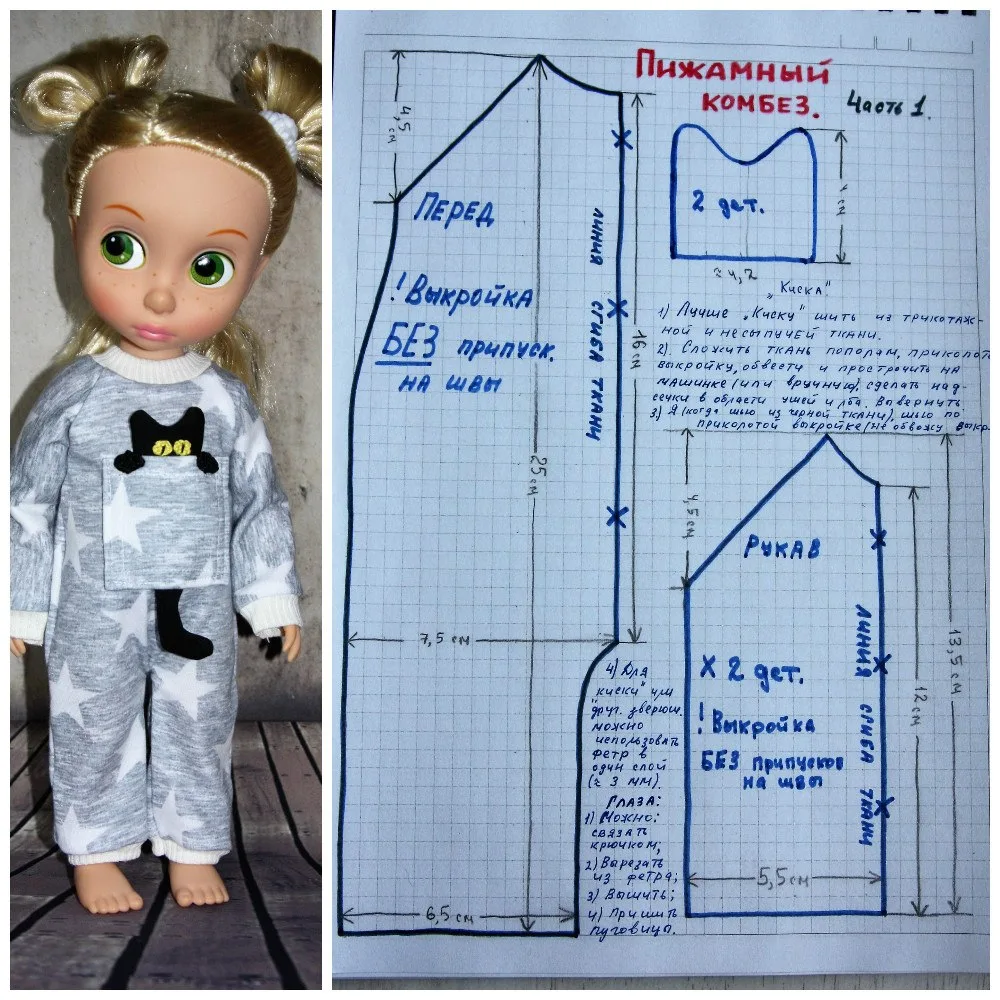 Пижамный
комбез.
Часть 1.
4,5 см
Перед
! Выкройка
БЕЗ припуск.
на швы
линия сгиба ткани
16 см
25 см
7,5 см
6,5 см
2 дет.
4 см
≈ 4,2
„Киска"
1) Лучше „Киску" шить из трикотаж-
ной и несыпучей ткани.
2). Сложить ткань пополам, приколоть
выкройку, обвести и прострочить на
машинке (или вручную), сделать над-
сечки в области ушей и лба. Вывернуть
3) Я (когда шью из чёрной ткани), шью по
приколотой выкройке (не обвожу выкр
4) Для
„киски" или
друг. зверюш.
можно
использовать
фетр в
один слой
(≈ 3 мм).
Глаза:
1) Можно:
связать
крючком;
2) Вырезать
из фетра;
3) Вышить;
4) Пришить
пуговицы.
4,5 см
Рукав
Х 2 дет.
! Выкройка
БЕЗ припусков
на швы
линия сгиба ткани
12 см
13,5 см
5,5 см